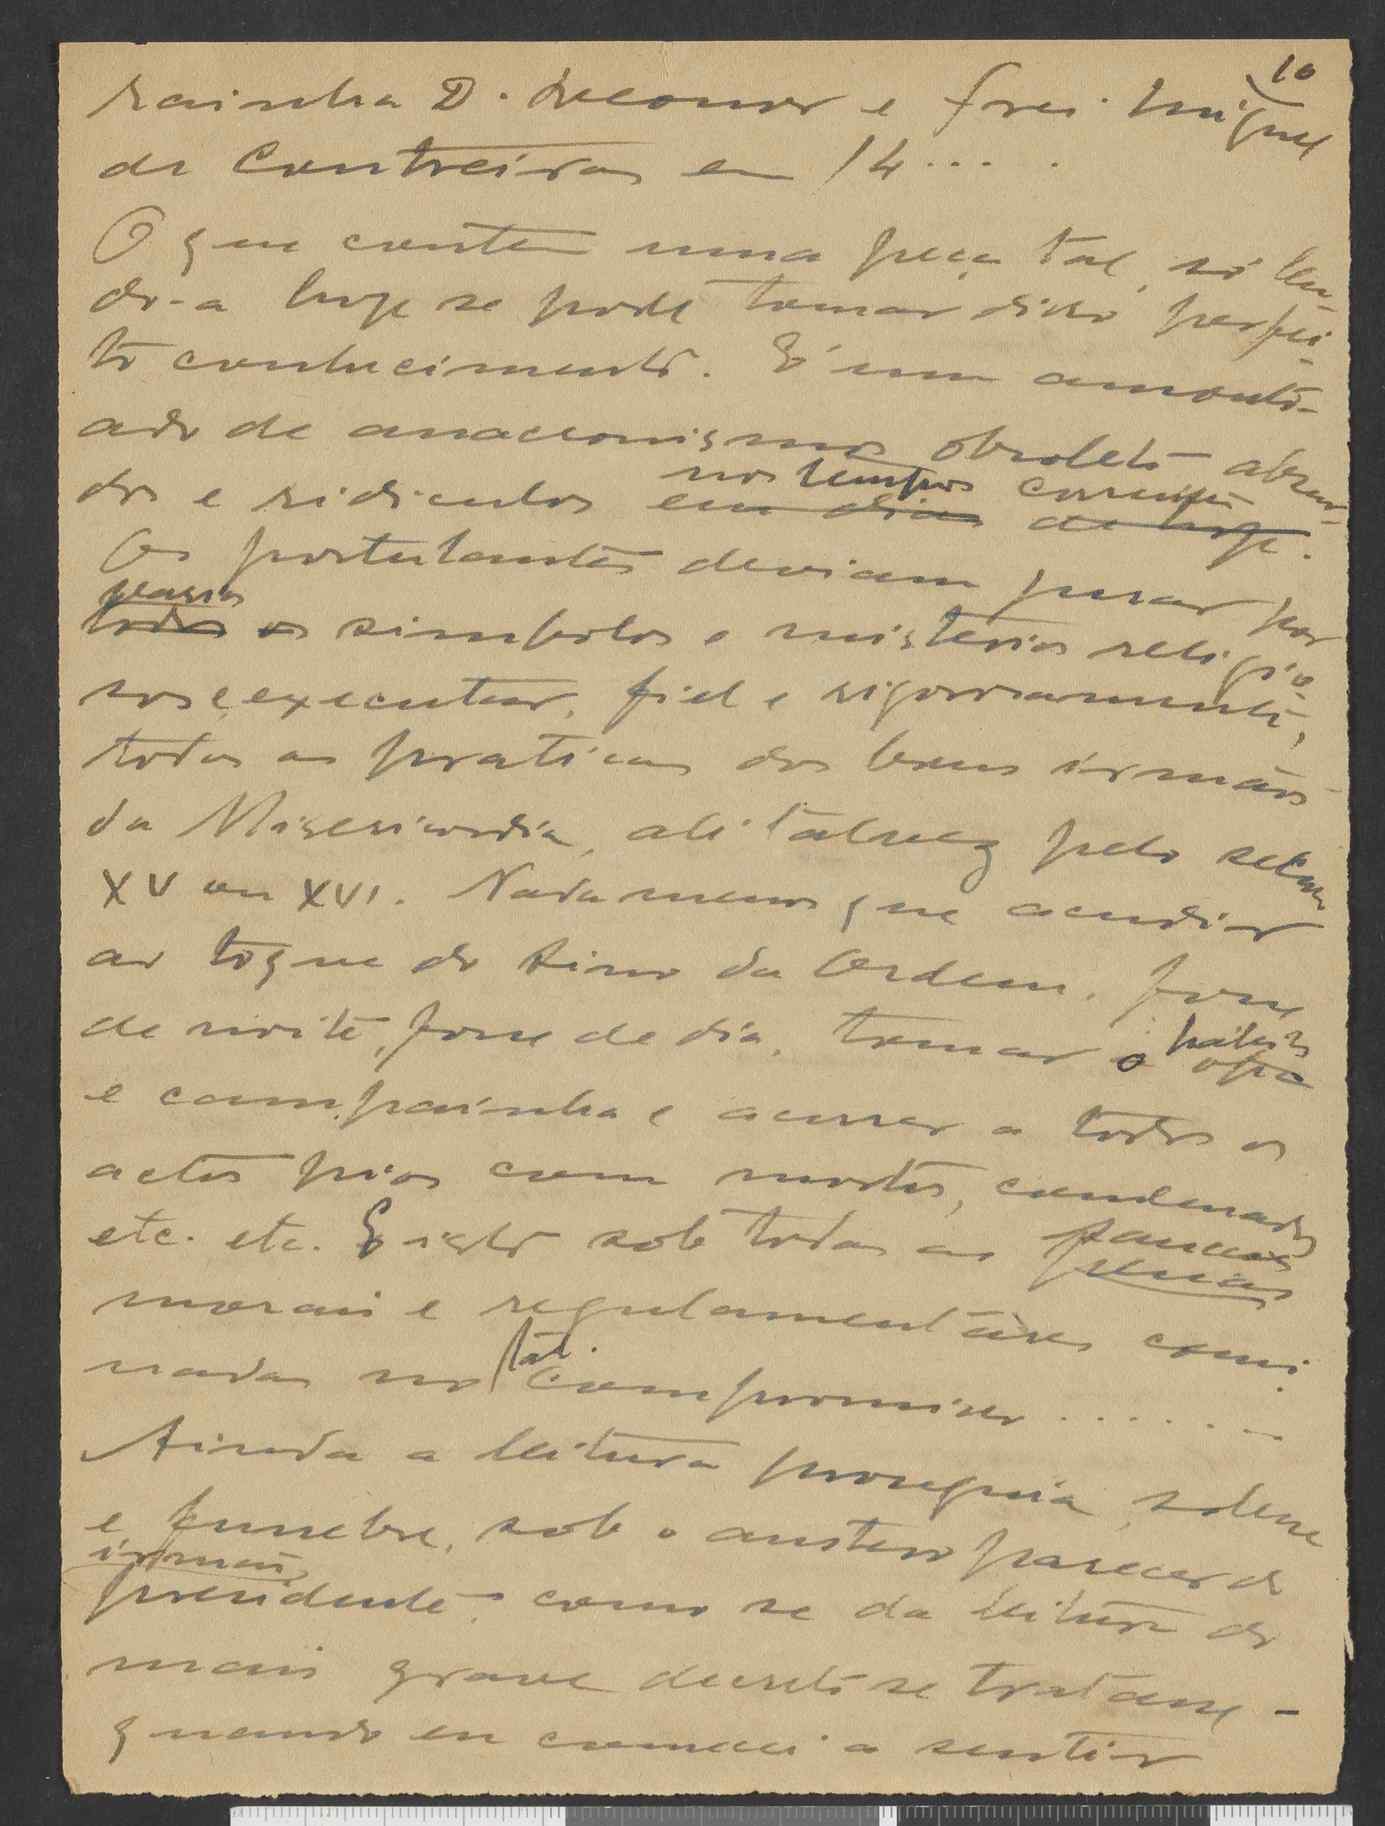 10
rainha D. Leonor e frei Miguel
de Contreiras em 14....
O que contem uma peça tal, só len-
do-a hoje se pode tomar disso perfei-
to conhecimento. É um amonto-
ado de anacronismos obsoletos absur-
nos tempos correntes
dos e ridiculos em dias de hoje.
Os postulantes deviam jurar por
varios
todos os simbolos e misterios religio-
sos e executar, fiel e rigorosamente,
todas as praticas dos bons irmãos
da Misericordia, ali talvez pelo seculo
XV ou XVI. Nada menos que acudir
ao toque do sino da Ordem, fosse
de noite, fosse de dia, tomar o
opa
e campainha e acorrer a todos os
actos pios com mortos, condenados
etc. etc. E isto sob todas as
sanções
penas
morais e regulamentares comi-
nadas no tal compromisso......
Ainda a leitura proseguia, solene
e funebre, sob o austero parecer do
irmão
presidente, como se da leitura do
mais grave decreto se tratasse -
quando eu comecei a sentir